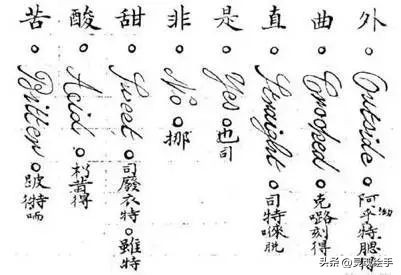 外 Outside 阿乎特腮
曲 Crooked 克嚕刻得
直 Straight 司特
是 Yes 也司
非 No 挪
甜 Sweet 司廢衣特 雖特
酸 Acid
苦 Bitter
头条@灵魂绘手